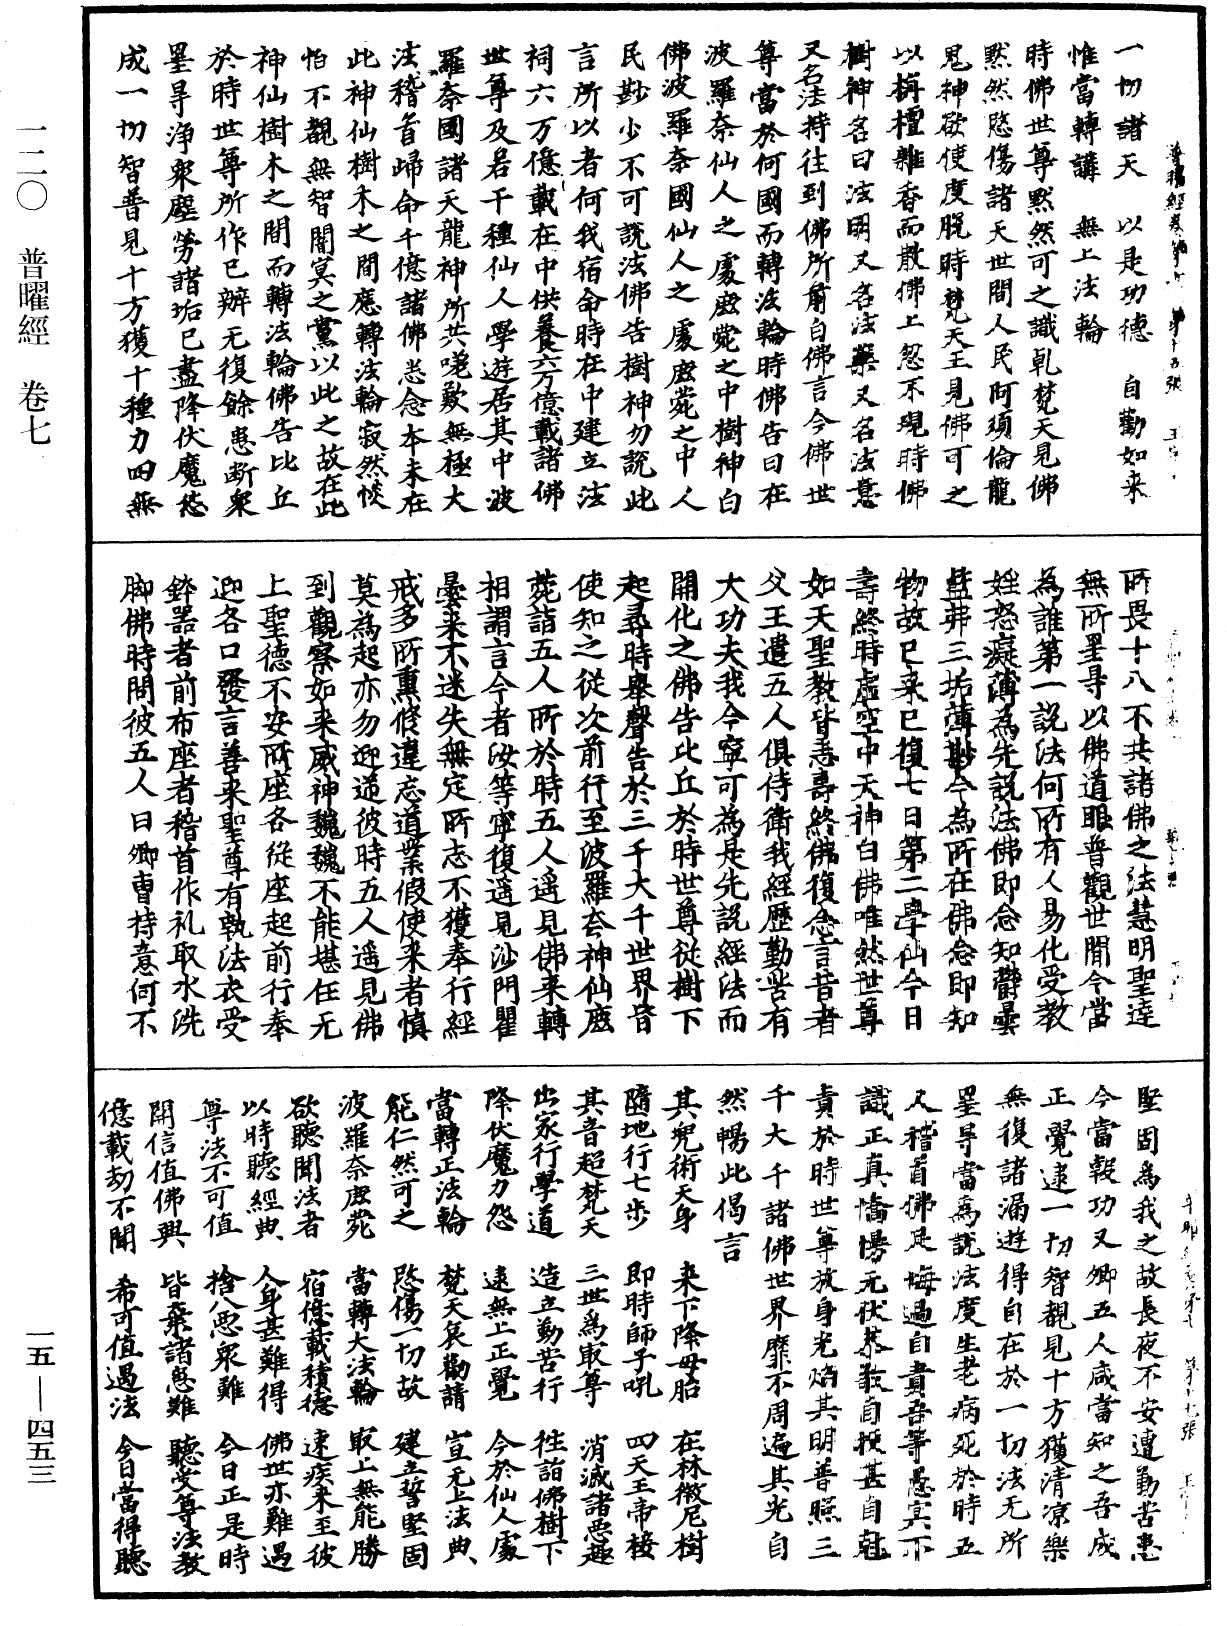 一切諸天　以是功德　自勸如来
惟當轉講　無上法輪
時佛世尊黙然可之識乹梵天見佛
黙然愍傷諸天世間人民阿湏倫龍
鬼神欲使度脫時梵天王見佛可之
以栴檀雜香而散佛上忽不現時佛
樹神名曰法明又名法藥又名法意
又名法持往到佛所前白佛言今佛世
尊當於何國而轉法輪時佛告曰在
波羅奈仙人之處鹿苑之中樹神白
佛波羅奈國仙人之處鹿苑之中人
民尠少不可說法佛告樹神勿說此
言所以者何我宿命時在中建立法
祠六万億載在中供養六万億載諸佛
世尊及若干種仙人學遊居其中波
羅奈國諸天龍神所共嗟歎無極大
法稽首歸命千億諸佛悉念本末在
此神仙樹木之間應轉法輪寂然惔
怕不覩無智闇冥之黨以此之故在此
神仙樹木之間而轉法輪佛告比丘
於時世尊所作已辦无復餘患断衆
罣㝵浄衆塵勞諸垢已盡降伏魔怨
成一切智普見十方獲十種力四無
所畏十八不共諸佛之法慧明聖達
無所罣㝵以佛道眼普觀世間今當
為誰第一說法何所有人易化受教
婬怒癡薄為先說法佛即念知欝曇
藍弗三垢薄尠今為所在佛念即知
物故已来已復七日第二學仙今日
壽終時虛空中天神白佛唯然世尊
如天聖教皆悉壽終佛復念言昔者
父王遣五人俱侍衛我經歷勤苦有
大功夫我今寧可為是先說經法而
開化之佛告比丘於時世尊從樹下
起尋時舉聲告於三千大千世界皆
使知之從次前行至波羅奈神仙鹿
苑詣五人所於時五人遙見佛来轉
相謂言今者汝等寧復遥見沙門瞿
曇来不迷失無定所志不獲奉行經
戒多所熏修違志道業假使来者慎
莫為起亦勿迎逆彼時五人遥見佛
到觀察如来威神巍巍不能堪任无
上聖德不安所座各從座起前行奉
迎各口發言善来聖尊有執法衣受
鉢器者前布座者稽首作礼取水洗
脚佛時問彼五人曰卿曹持意何不
堅固為我之故長夜不安遭勤苦患
今當報功又卿五人咸當知之吾成
正覺逮一切智覩見十方獲清凉樂
無復諸漏遊得自在於一切法无所
罣㝵當為說法度生老病死於時五
人稽首佛足悔過自責吾等愚冥不
識正真憍慢无伏恭敬自投甚自尅
責於時世尊放身光焰其明普照三
千大千諸佛世界靡不周遍其光自
然暢此偈言
其兜術天身　来下降母胎　在林微尼樹
隨地行七步　即時師子吼　四天王帝接
其音超梵天　三世為最尊　消滅諸惡趣
出家行學道　造立勤苦行　往詣佛樹下
降伏魔力怨　逮無上正覺　今於仙人處
當轉正法輪　梵天哀勸請　宣无上法典
能仁然可之　愍傷一切故　建立誓堅固
波羅奈鹿苑　當轉大法輪　取上無能勝
欲聽聞法者　宿億載積德　速疾来至彼
以時聽經典　人身甚難得　佛世亦難遇
尊法不可值　捨八惡衆難　今日正是時
開信值佛興　皆棄諸惡難　聽受尊法教
億載劫不聞　希可值遇法　今日當得聽
一二〇　普曜經　卷七
一五—四五三